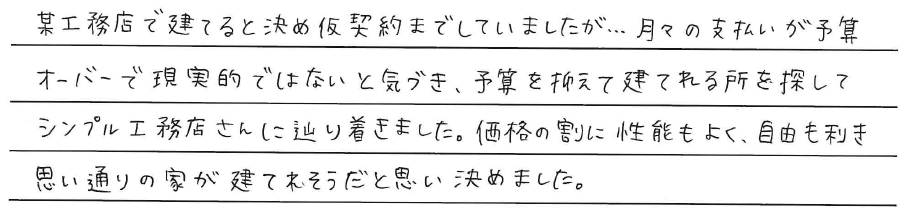 某工務店で建てると決め仮契約までしていましたが…月々の支払いが予算
オーバーで現実的ではないと気づき、予算を抑えて建てれる所を探して
シンプル工務店さんに辿り着きました。価格の割に性能もよく、自由も利き
思い通りの家が建てれそうだと思い決めました。